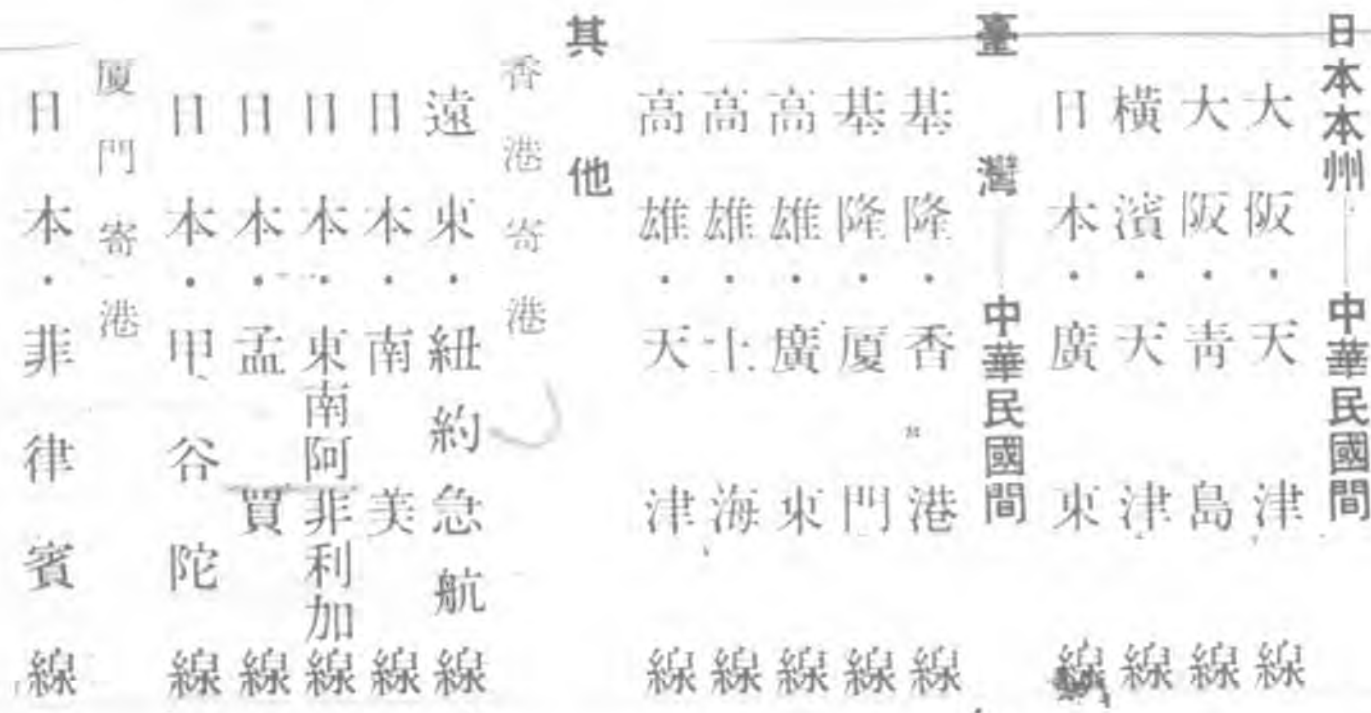 日本本州——中華民國間
大阪・天津線
大阪・青島線
橫濱・天津線
日本・廣東線
臺灣——中華民國間
基隆・香港線
基隆・厦門線
高雄・廣東線
高雄・上海線
高雄・天津線
其他
香港寄港
遠東・紐約急航線
日本・南美線
日本・東南阿非利加線
日本・孟買線
日本・甲谷陀線
厦門寄港
日本・菲律賓線